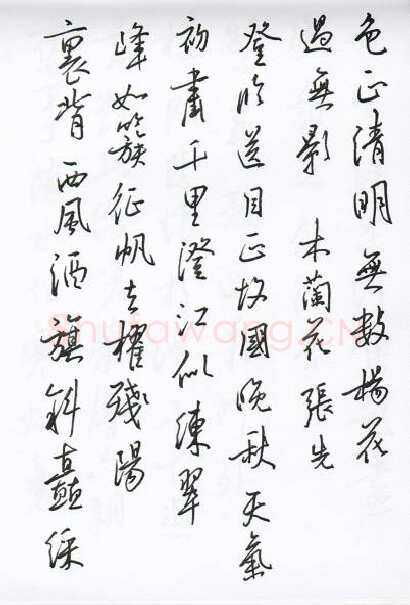 色正清明無數楊花
過無影 木蘭花張先
登临送目正故國晚秋天氣
初肅千里澄江似練翠
峰如簇征帆去櫂殘陽
裏背西風酒旗斜矗綵
Shufawang.CN